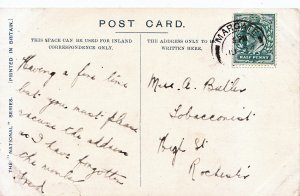 POST CARD.
THIS SPACE CAN BE USED FOR INLAND
CORRESPONDENCE ONLY.
THE ADDRESS ONLY TO BE
WRITTEN HERE.
THE "NATIONAL" SERIES.
PRINTED IN BRITAIN.
MARGATE
HALF PENNY
Having a fine time
but you must please
excuse the address
as I have forgotten
the number
Fred
Miss A. Butler
Tobacconist
High St
Rochester